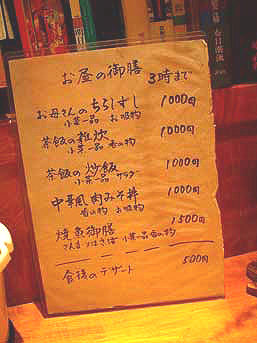 お昼の御膳 3時まで
お母さんのちらしすし 1000円
小菜一品 お吸物
茶飯の雑炊 1000円
小菜一品 香の物
茶飯の炒飯 1000円
小菜一品 サラダ
中華風肉みそ丼 1000円
香の物 お吸物
焼魚御膳 1500円
さんま又はさば 小菜一品 香の物
食後のデザート 500円